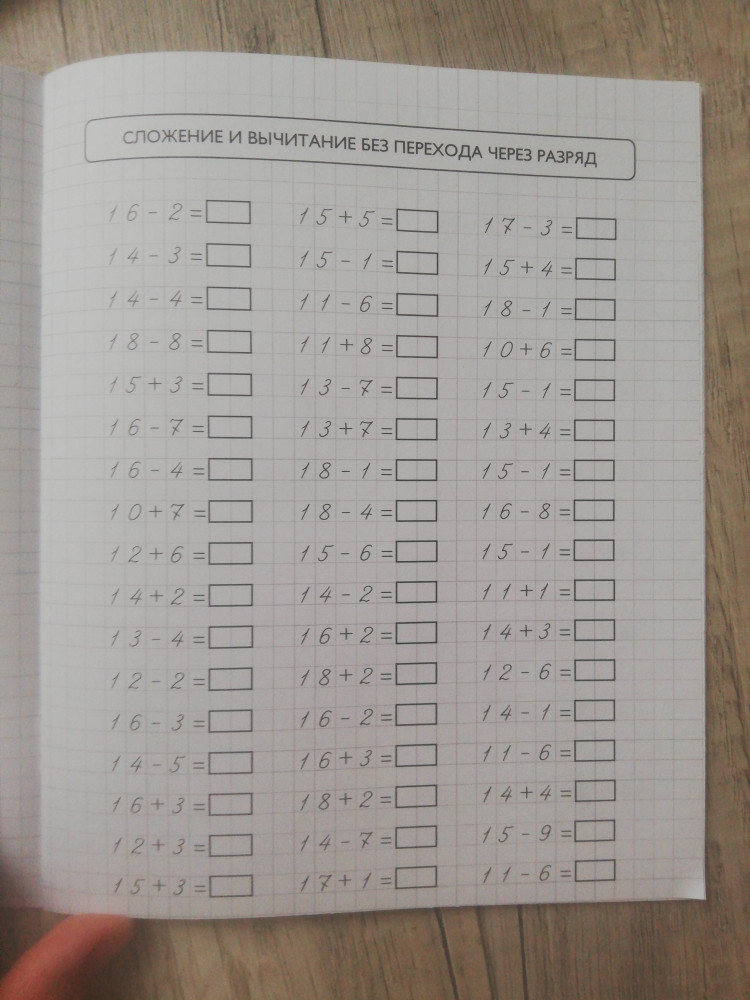 СЛОЖЕНИЕ И ВЫЧИТАНИЕ БЕЗ ПЕРЕХОДА ЧЕРЕЗ РАЗРЯД
16-2=
14-3=
14-4=
18-8=
15+3=
16-7=
16-4=
10+7=
12+6=
14+2=
13-4=
12-2=
16-3=
14-5=
16+3=
12+3=
15+3=
15+5=
15-1=
11-6=
11+8=
13-7=
13+7=
18-1=
18-4=
15-6=
14-2=
16+2=
18+2=
16-2=
16+3=
18+2=
14-7=
17+1=
17-3=
15+4=
18-1=
10+6=
15-1=
13+4=
15-1=
16-8=
15-1=
11+1=
14+3=
12-6=
14-1=
11-6=
14+4=
15-9=
11-6=